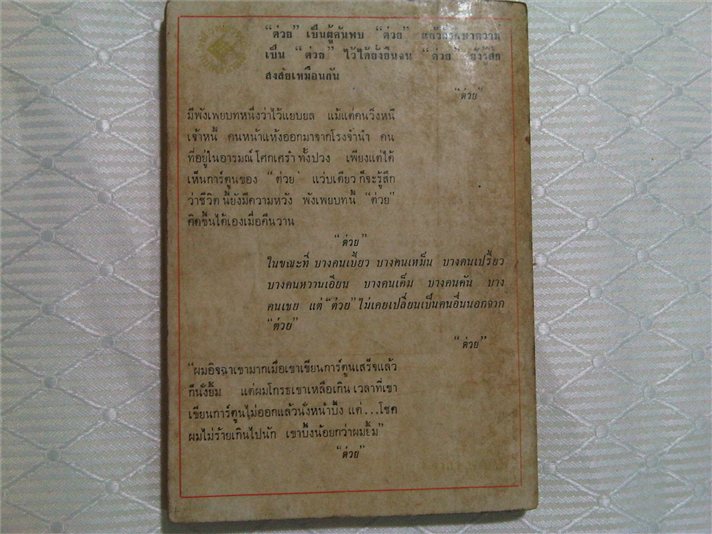 "ต่วย" เป็นผู้ค้นพบ "ต่วย" แล้ว
เป็น "ต่วย" ไว้ได้ยั่งยืนจน "ต่วย" ยังรู้สึก
สงสัยเหมือนกัน
"ต่วย"
มีพังเพยบทหนึ่งว่าไว้แยบยล แม้แต่คนวิ่งหนี
เจ้าหนี้ คนหน้าแห้งออกมาจากโรงจำนำ คน
ที่อยู่ในอารมณ์โศกเศร้าทั้งปวง เพียงแต่ได้
เห็นการ์ตูนของ "ต่วย" แว่บเดียว ก็จะรู้สึก
ว่าชีวิตนี้ยังมีความหวัง พังเพยบทนี้ "ต่วย"
คิดขึ้นได้เองเมื่อคืนวาน
"ต่วย"
ในขณะที่ บางคนเบี้ยว บางคนเหม็น บางคนเปรี้ยว
บางคนหวานเอียน บางคนเค็ม บางคนคัน บาง
คนเชย แต่ "ต่วย" ไม่เคยเปลี่ยนเป็นคนอื่นนอกจาก
"ต่วย"
"ต่วย"
"ผมอิจฉาเขามากเมื่อเขาเขียนการ์ตูนเสร็จแล้ว
ก็นั่งยิ้ม แต่ผมโกรธเขาเหลือเกิน เวลาที่เขา
เขียนการ์ตูนไม่ออกแล้วนั่งหน้าบึ้ง แต่...โชค
ผมไม่ร้ายเกินไปนัก เขาบึ้งน้อยกว่าผมยิ้ม"
"ต่วย"